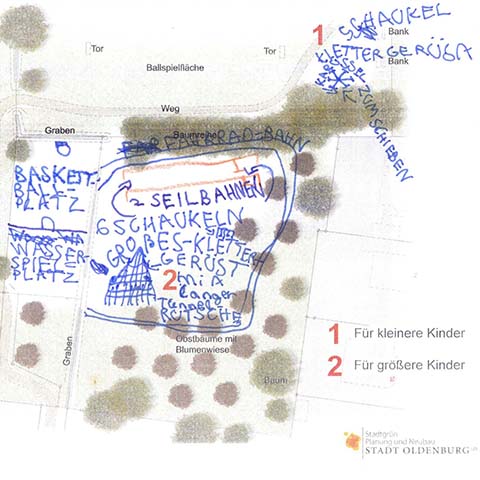 1
SCHAUKEL
Bank
KLETTERGERÜST
Bank
ZUM SCHIEBEN
Tor
Tor
Ballspielfläche
Weg
Graben
Baumreihe
FAHRRAD-BAHN
BASKETT-
BALL-
PLATZ
2 SEILBAHNEN
6 SCHAUKELN
GROßES-KLETTER-
GERÜST
WASSER-
SPIEL-
PLATZ
2
mit
langer
Tunnel
RUTSCHE
Graben
Obstbäume mit
Blumenwiese
Baum
1 Für kleinere Kinder
2 Für größere Kinder
Stadtgrün
Planung und Neubau
STADT OLDENBURG